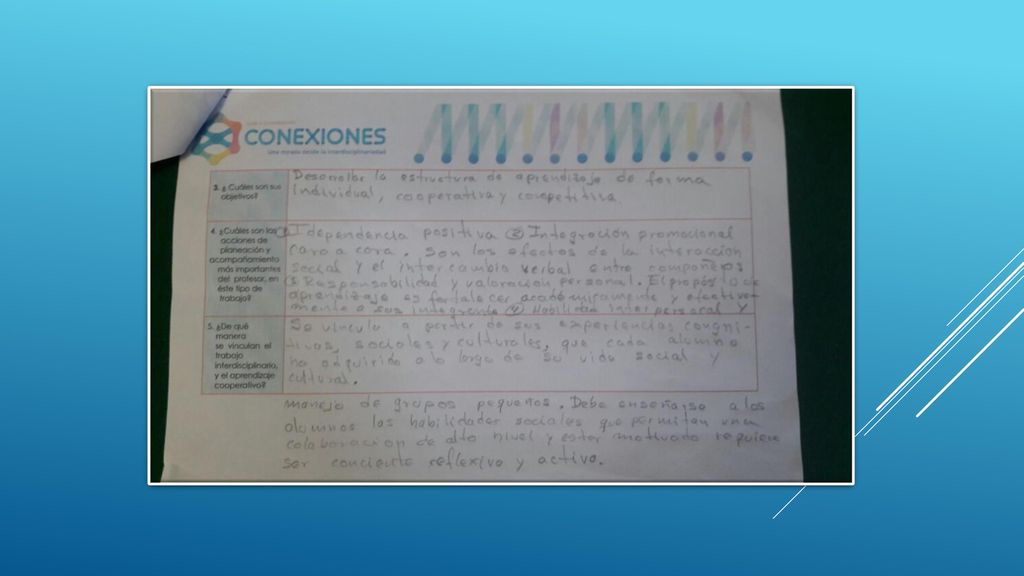 CONEXIONES
Una mirada desde la interdisciplinariedad
3. ¿Cuáles son sus
objetivos?
la estructura de aprendizaje de forma
Individual, cooperativa y competitiva
4. ¿Cuáles son las
acciones de
planeación y
acompañamiento
más importantes
del profesor, en
éste tipo de
trabajo?
① Idependencia positiva ② Integración promocional
Cara a cara. Son los efectos de la interacción
social y el intercambio verbal entre compañeros
③ Responsabilidad y valoración personal. El propósito de
aprendizaje es fortalecer academicamente y
mente a sus integrante ④ Habilidad interpersonal y
5. ¿De qué
manera
se vinculan el
trabajo
interdisciplinario,
y el aprendizaje
cooperativo?
Se vincula a partir de sus experiencias
sociales y culturales, que cada alumno
ha adquirido a lo largo de su vida social y
cultural.
manejo de grupos pequeños. Debe a los
alumnos las habilidades sociales que permitan una
colaboración de alto nivel y estar motivado requiere
ser conciente reflexivo y activo.